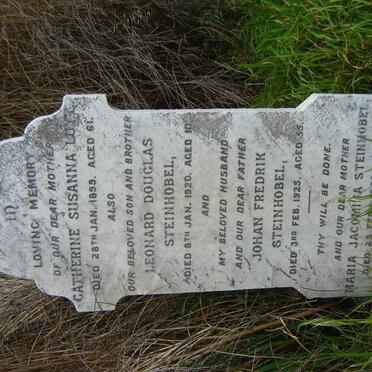 IN
LOVING MEMORY
OF OUR DEAR MOTHER
CATHERINE SUSANNA
DIED 28TH JAN. 1899. AGED 61.
ALSO
OUR BELOVED SON AND BROTHER
LEONARD DOUGLAS
STEINHOBEL,
DIED 8TH JAN. 1920. AGED 10.
AND
MY BELOVED HUSBAND
AND OUR DEAR FATHER
JOHAN FREDRIK
STEINHOBEL,
DIED 3RD FEB. 1925. AGED 55.
THY WILL BE DONE.
AND OUR DEAR MOTHER
MARIA JACOMINA STEINHOBEL,